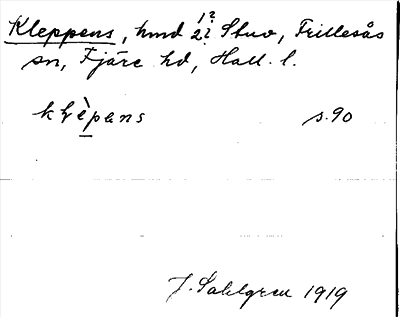 Kleppens, hmd 2 1? ? Stuv, Frillesås
sn, Fjäre hd, Hall. l.
klèpens s. 90
J. Sahlgren 1919